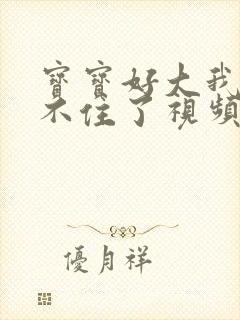 寶寶好大我
不住了視頻
優月祥